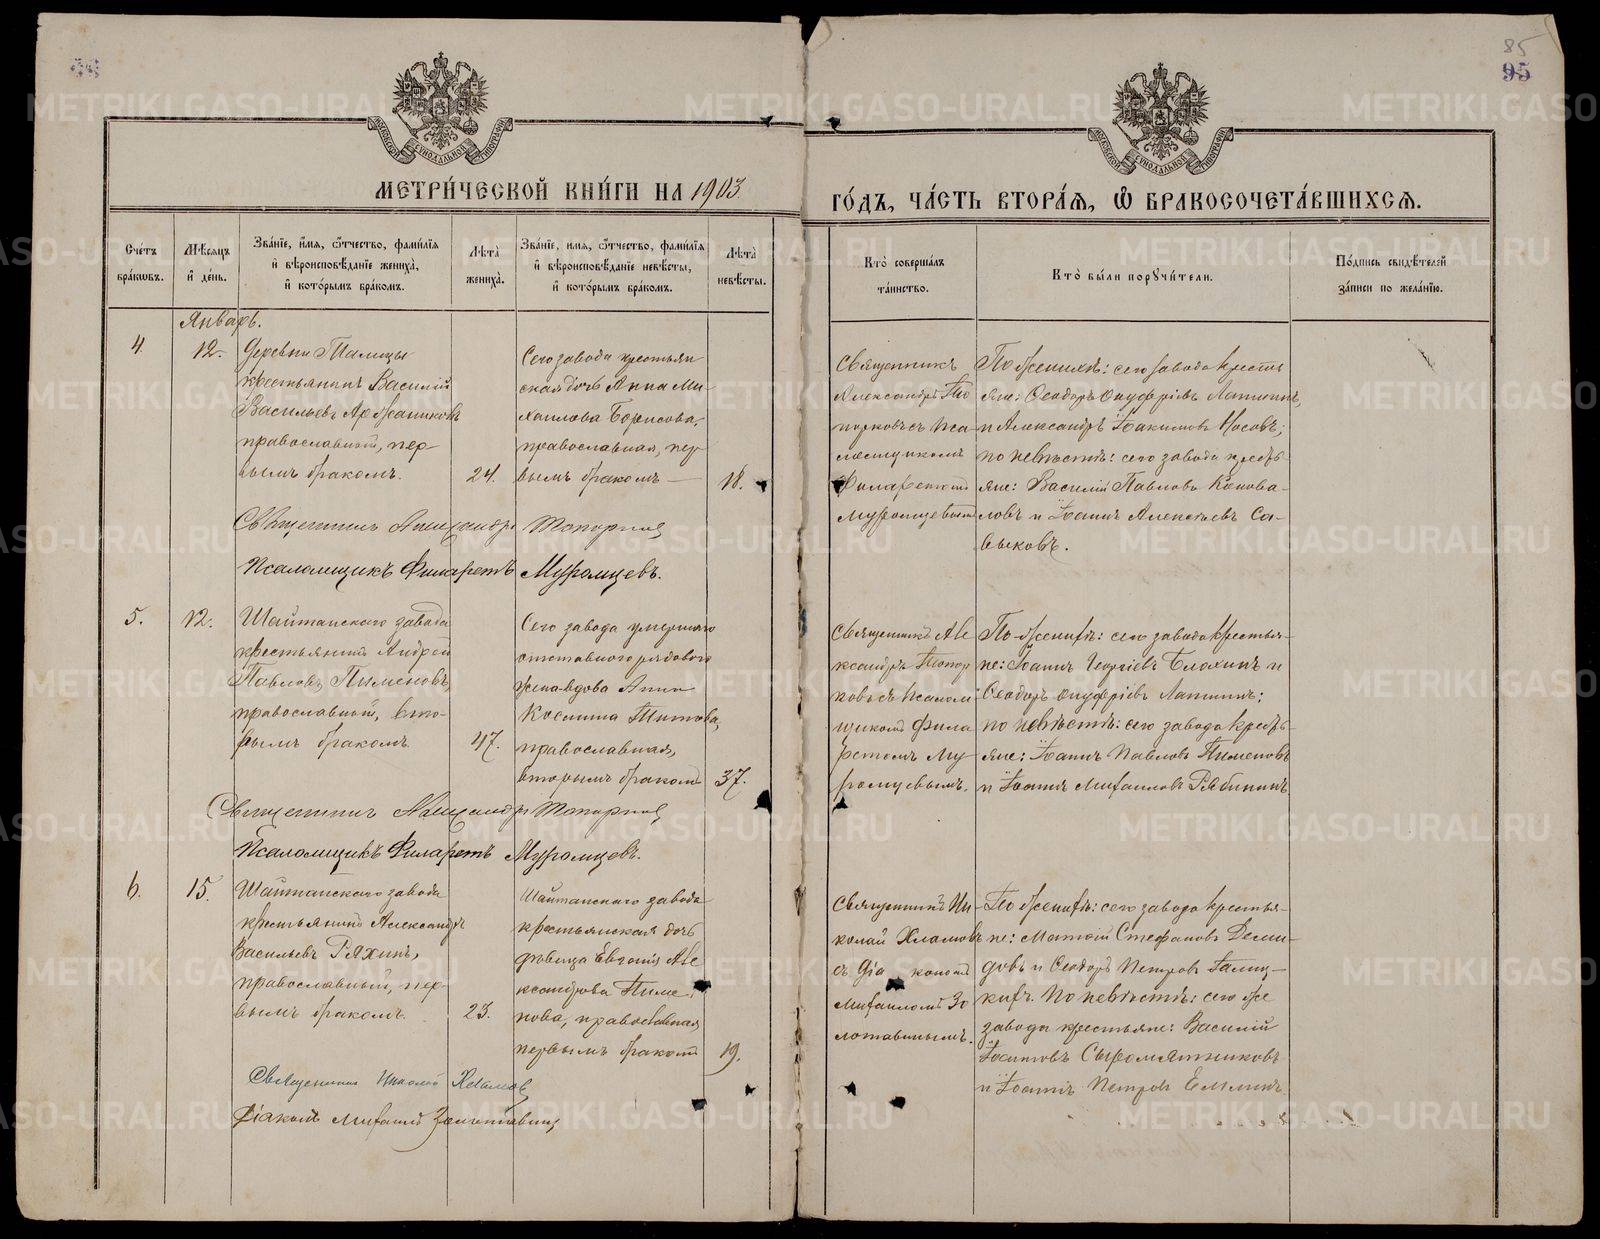 85
95
МОСКОВСКОЙ СѴНОДАЛЬНОЙ ТИПОГРАФІИ
МОСКОВСКОЙ СѴНОДАЛЬНОЙ ТИПОГРАФІИ
МЕТРИ́ЧЕСКОЙ КНИ́ГИ НА 1903
ГО́ДЪ, ЧА́СТЬ ВТОРА́Я, Ѿ БРАКОСОЧЕТА́ВШИХСЯ.
Сче́тъ
бра́ковъ.
Мѣ́сяцъ
и҆ де́нь.
Зва́нїе, и҆́мя, ѻ҆́тчество, фами́лїя
и҆ вѣроисповѣ́данїе жениха̀,
и҆ кото́рымъ бра́комъ.
Лѣ́та
жениха̀.
Зва́нїе, и҆́мя, ѻ҆́тчество, фами́лїя
и҆ вѣроисповѣ́данїе невѣ́сты,
и҆ кото́рымъ бра́комъ.
Лѣ́та
невѣ́сты.
Кто̀ соверша́лъ
та́инство.
Кто̀ бы́ли порꙋчи́тели.
По́дпись свидѣ́телей
за́писи по жела́нїю.
Январь.
4.
12.
Деревни Талицы
крестьянинъ Василій
Васильевъ
православный, пер-
вымъ бракомъ.
24.
Сего завода крестьян
ская дочь Анна Ми-
хаилова Борисова,
православная, пер
вымъ бракомъ —
18.
Священникъ
Александръ То
порковъ съ Пса
ломщикомъ
Филаретомъ
Муромцевымъ
По женихѣ: сего завода кресть
яне: Ѳеодоръ Онуфріевъ Лапшинъ,
и Александръ Іоакимовъ Носовъ;
по невѣстѣ: сего завода кресть
яне: Василій Павловъ Конова-
ловъ и Іоаннъ Алексѣевъ Са-
выковъ.
Священникъ Александръ Топорковъ
Псаломщикъ Филаретъ Муромцевъ.
5.
12.
Шайтанскаго завода
крестьянинъ Андрей
Павловъ Пименовъ,
православный, вто-
рымъ бракомъ.
47.
Сего завода умершаго
отставного рядового
жена-вдова Анна
Космина Титова,
православная,
вторымъ бракомъ
37.
Священникъ Але
ксандръ Топор
ковъ съ Псалом
щикомъ Фила
ретомъ Му-
ромцевымъ.
По женихѣ: сего завода крестья-
не: Іоаннъ Георгіевъ Блохинъ и
Ѳеодоръ Онуфріевъ Лапшинъ;
по невѣстѣ: сего завода кресть-
яне: Іоаннъ Павловъ Пименовъ
и Іоаннъ Михаиловъ Рябининъ.
Священникъ Александръ Топорковъ
Псаломщикъ Филаретъ Муромцевъ.
6.
15.
Шайтанскаго завода
крестьянинъ Александръ
Васильевъ Ряхинъ,
православный, пер-
вымъ бракомъ.
23.
Шайтанскаго завода
крестьянская дочь
дѣвица Евгенія Але
ксандрова Пиме-
нова, православная
первымъ бракомъ
19.
Священникъ Ни-
колай Хламовъ
съ Діакономъ
Михаиломъ Зо
лотавинымъ.
По женихѣ: сего завода крестья-
не: Матѳій Стефановъ Деми-
довъ и Ѳеодоръ Петровъ Галиц-
кихъ. По невѣстѣ: сего же
завода крестьяне: Василій
Іоанновъ Сыромятниковъ
и Іоаннъ Петровъ Ёлкинъ
Священникъ Николай Хламовъ
Діаконъ Михаилъ Золотавинъ
METRIKI.GASO-URAL.RU